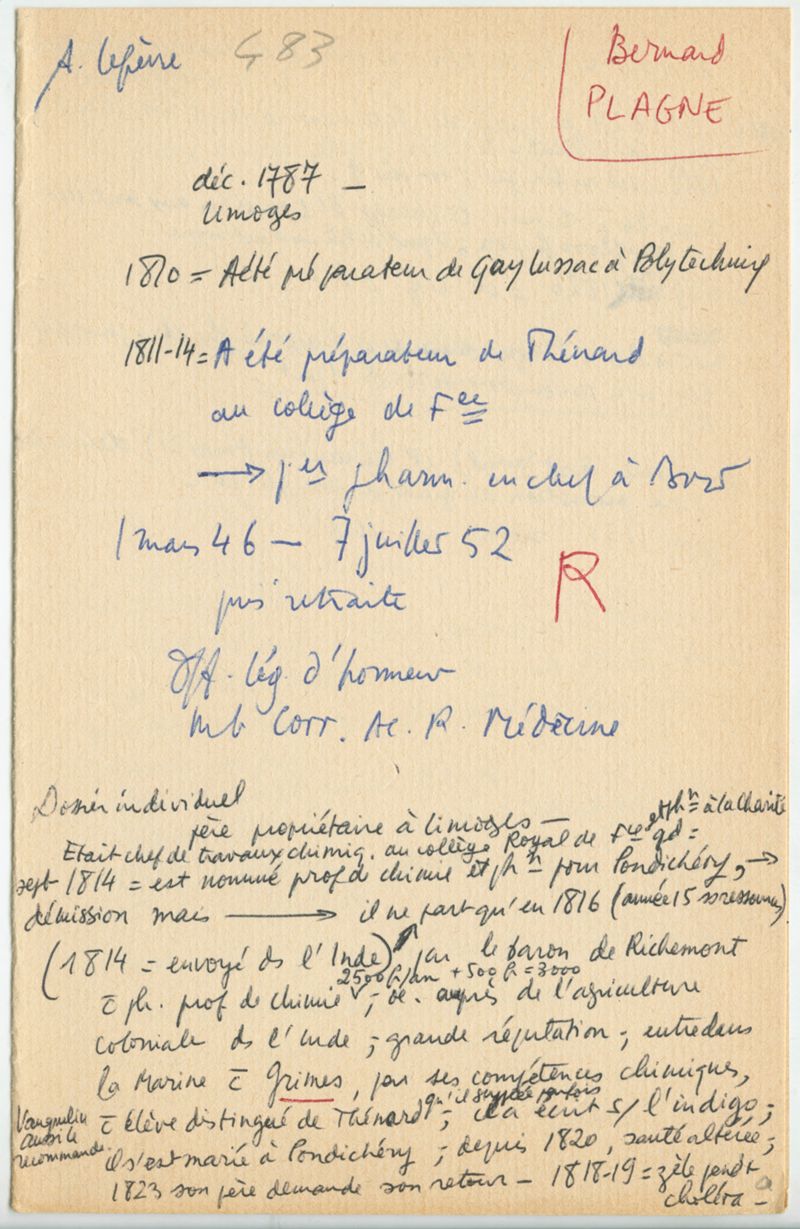 A. Lefèvre 483
Bernard
PLAGNE
déc. 1787 —
Limoges
1810 = A été préparateur de Gay Lussac à Polytechniq
1811-14 = A été préparateur de Thénard
au collège de Fce
→ 1er pharm. en chef à
1 mars 46 — 7 juillet 52
puis retraite
R
Off. lég. d'honneur
mb Corr. Ac. R. Médecine
Dossier individuel
père propriétaire à Limoges —
et phn à la charité
Etait chef de travaux chimiq. au collège Royal de Fce qd =
sept 1814 = est nommé prof de chimie et phn pour Pondichéry, →
démission mais → il ne part qu'en 1816 (année 15 ss ressources)
(1814 = envoyé ds l'Inde) par le baron de Richemont
2500 fr/an + 500 fr = 3000
c ph. prof de chimie ; auprès de l'agriculture
coloniale ds l'Inde ; grande réputation ; entre dans
la Marine c Grimes, par ses compétences chimiques,
qu'il supplée parfois
c élève distingué de Thénard ; il a écrit s/ l'indigo ;
Vauquelin
aussi le
recommande
il s'est marié à Pondichéry ; depuis 1820, santé altérée ;
1823 son père demande son retour — 1818-19 = zèle pendt
choléra —